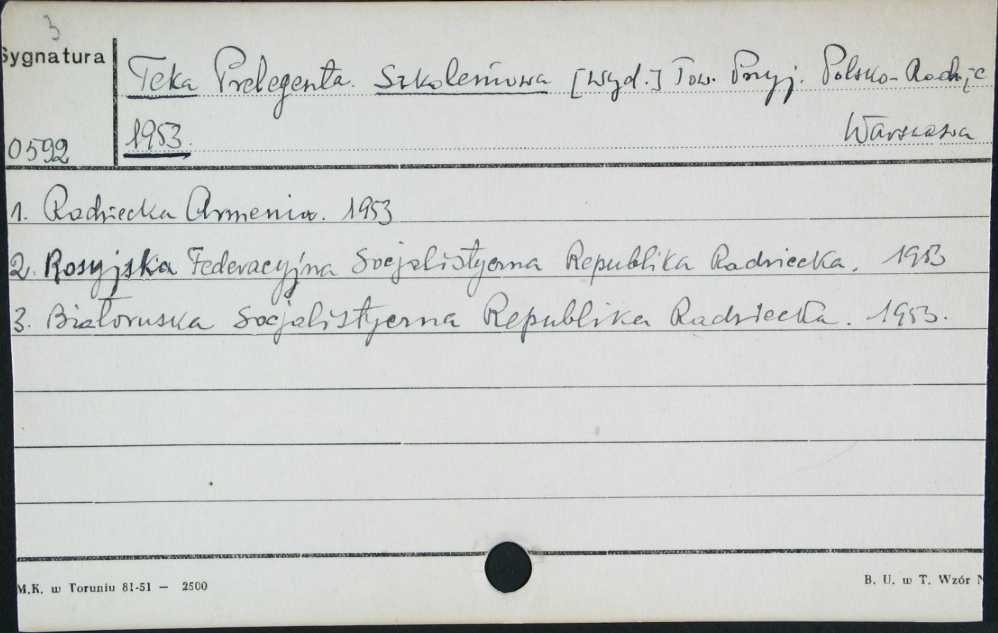 3
Sygnatura
Teka Prelegenta. Szkoleniowa [Wyd.:] Tow. Przyj. Polsko-Radziec
0592
1953.
Warszawa
1. Radziecka Armenia. 1953
2. Rosyjska Federacyjna Socjalistyczna Republika Radziecka. 1953
3. Białoruska Socjalistyczna Republika Radziecka. 1953.
M.K. w Toruniu 81-51 — 2500
B. U. w T. Wzór N